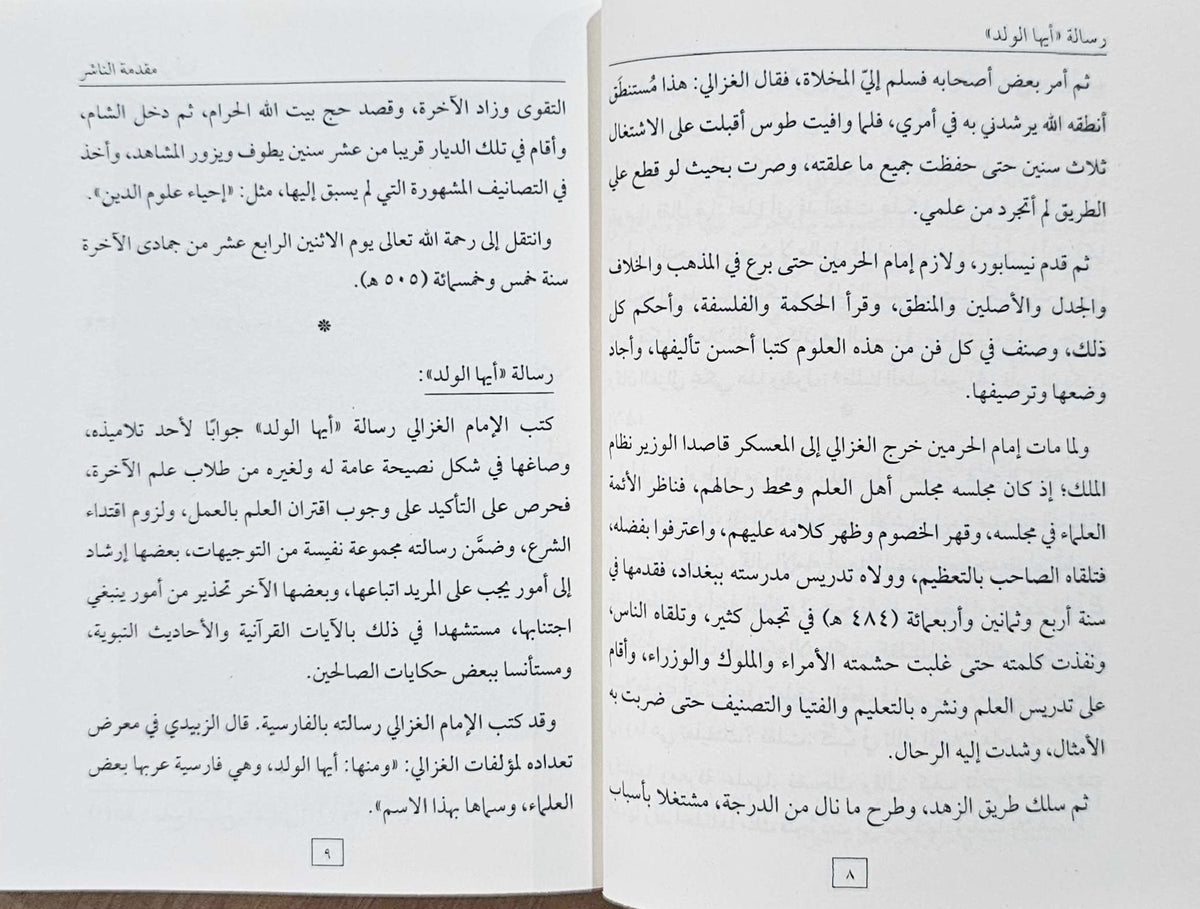 رسالة «أيها الولد»
ثم أمر بعض أصحابه فسلم إليّ المخلاة، فقال الغزالي: هذا مُستنطَق
أنطقه الله يرشدني به في أمري، فلما وافيت طوس أقبلت على الاشتغال
ثلاث سنين حتى حفظت جميع ما علقته، وصرت بحيث لو قطع علي
الطريق لم أتجرد من علمي.
ثم قدم نيسابور، ولازم إمام الحرمين حتى برع في المذهب والخلاف
والجدل والأصلين والمنطق، وقرأ الحكمة والفلسفة، وأحكم كل
ذلك، وصنف في كل فن من هذه العلوم كتبا أحسن تأليفها، وأجاد
وضعها وترصيفها.
ولما مات إمام الحرمين خرج الغزالي إلى المعسكر قاصدا الوزير نظام
الملك؛ إذ كان مجلسه مجلس أهل العلم ومحط رحالهم، فناظر الأئمة
العلماء في مجلسه، وقهر الخصوم وظهر كلامه عليهم، واعترفوا بفضله،
فتلقاه الصاحب بالتعظيم، وولاه تدريس مدرسته ببغداد، فقدمها في
سنة أربع وثمانين وأربعمائة (٤٨٤ هـ) في تجمل كثير، وتلقاه الناس،
ونفذت كلمته حتى غلبت حشمته الأمراء والملوك والوزراء، وأقام
على تدريس العلم ونشره بالتعليم والفتيا والتصنيف حتى ضربت به
الأمثال، وشدت إليه الرحال.
ثم سلك طريق الزهد، وطرح ما نال من الدرجة، مشتغلا بأسباب
٨
مقدمة الناشر
التقوى وزاد الآخرة، وقصد حج بيت الله الحرام، ثم دخل الشام،
وأقام في تلك الديار قريبا من عشر سنين يطوف ويزور المشاهد، وأخذ
في التصانيف المشهورة التي لم يسبق إليها، مثل: «إحياء علوم الدين».
وانتقل إلى رحمة الله تعالى يوم الاثنين الرابع عشر من جمادى الآخرة
سنة خمس وخمسمائة (٥٠٥ هـ).
*
رسالة «أيها الولد»:
كتب الإمام الغزالي رسالة «أيها الولد» جوابًا لأحد تلاميذه،
وصاغها في شكل نصيحة عامة له ولغيره من طلاب علم الآخرة،
فحرص على التأكيد على وجوب اقتران العلم بالعمل، ولزوم اقتداء
الشرع، وضمَّن رسالته مجموعة نفيسة من التوجيهات، بعضها إرشاد
إلى أمور يجب على المريد اتباعها، وبعضها الآخر تحذير من أمور ينبغي
اجتنابها، مستشهدا في ذلك بالآيات القرآنية والأحاديث النبوية،
ومستأنسا ببعض حكايات الصالحين.
وقد كتب الإمام الغزالي رسالته بالفارسية. قال الزبيدي في معرض
تعداده لمؤلفات الغزالي: «ومنها: أيها الولد، وهي فارسية عربها بعض
العلماء، وسماها بهذا الاسم».
٩